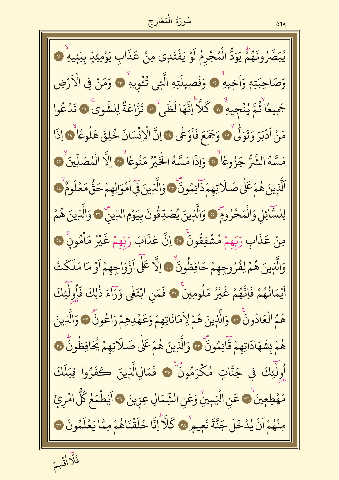 سُورَةُ الْمَعَارِجِ
٥٦٨
يُبَصَّرُونَهُمْۜ يَوَدُّ الْمُجْرِمُ لَوْ يَفْتَدٖى مِنْ عَذَابِ يَوْمِئِذٍ بِبَنٖيهِۙ ﴿١١﴾
وَصَاحِبَتِهٖ وَاَخٖيهِۙ ﴿١٢﴾ وَفَصٖيلَتِهِ الَّتٖى تُـْٔوٖيهِۙ ﴿١٣﴾ وَمَنْ فِى الْاَرْضِ
جَمٖيعًاۙ ثُمَّ يُنْجٖيهِۙ ﴿١٤﴾ كَلَّاۜ اِنَّهَا لَظٰىۙ ﴿١٥﴾ نَزَّاعَةً لِلشَّوٰىۚ ﴿١٦﴾ تَدْعُوا
مَنْ اَدْبَرَ وَتَوَلّٰىۙ ﴿١٧﴾ وَجَمَعَ فَاَوْعٰى ﴿١٨﴾ اِنَّ الْاِنْسَانَ خُلِقَ هَلُوعًاۙ ﴿١٩﴾ اِذَا
مَسَّهُ الشَّرُّ جَزُوعًاۙ ﴿٢٠﴾ وَاِذَا مَسَّهُ الْخَيْرُ مَنُوعًاۙ ﴿٢١﴾ اِلَّا الْمُصَلّٖينَۙ ﴿٢٢﴾
اَلَّذٖينَ هُمْ عَلٰى صَلَاتِهِمْ دَٓائِمُونَۙ ﴿٢٣﴾ وَالَّذٖينَ فٖٓى اَمْوَالِهِمْ حَقٌّ مَعْلُومٌۙ ﴿٢٤﴾
لِلسَّٓائِلِ وَالْمَحْرُومِۙ ﴿٢٥﴾ وَالَّذٖينَ يُصَدِّقُونَ بِيَوْمِ الدّٖينِۙ ﴿٢٦﴾ وَالَّذٖينَ هُمْ
مِنْ عَذَابِ رَبِّهِمْ مُشْفِقُونَۚ ﴿٢٧﴾ اِنَّ عَذَابَ رَبِّهِمْ غَيْرُ مَأْمُونٍ ﴿٢٨﴾
وَالَّذٖينَ هُمْ لِفُرُوجِهِمْ حَافِظُونَۙ ﴿٢٩﴾ اِلَّا عَلٰٓى اَزْوَاجِهِمْ اَوْ مَا مَلَكَتْ
اَيْمَانُهُمْ فَاِنَّهُمْ غَيْرُ مَلُومٖينَۚ ﴿٣٠﴾ فَمَنِ ابْتَغٰى وَرَٓاءَ ذٰلِكَ فَاُو۬لٰٓئِكَ
هُمُ الْعَادُونَۚ ﴿٣١﴾ وَالَّذٖينَ هُمْ لِاَمَانَاتِهِمْ وَعَهْدِهِمْ رَاعُونَۙ ﴿٣٢﴾ وَالَّذٖينَ
هُمْ بِشَهَادَاتِهِمْ قَٓائِمُونَۙ ﴿٣٣﴾ وَالَّذٖينَ هُمْ عَلٰى صَلَاتِهِمْ يُحَافِظُونَۜ ﴿٣٤﴾
اُو۬لٰٓئِكَ فٖى جَنَّاتٍ مُكْرَمُونَۜ ﴿٣٥﴾ فَمَالِ الَّذٖينَ كَفَرُوا قِبَلَكَ
مُهْطِعٖينَۙ ﴿٣٦﴾ عَنِ الْيَمٖينِ وَعَنِ الشِّمَالِ عِزٖينَ ﴿٣٧﴾ اَيَطْمَعُ كُلُّ امْرِئٍ
مِنْهُمْ اَنْ يُدْخَلَ جَنَّةَ نَعٖيمٍۙ ﴿٣٨﴾ كَلَّاۜ اِنَّا خَلَقْنَاهُمْ مِمَّا يَعْلَمُونَ ﴿٣٩﴾
فَلَٓا اُقْسِمُ